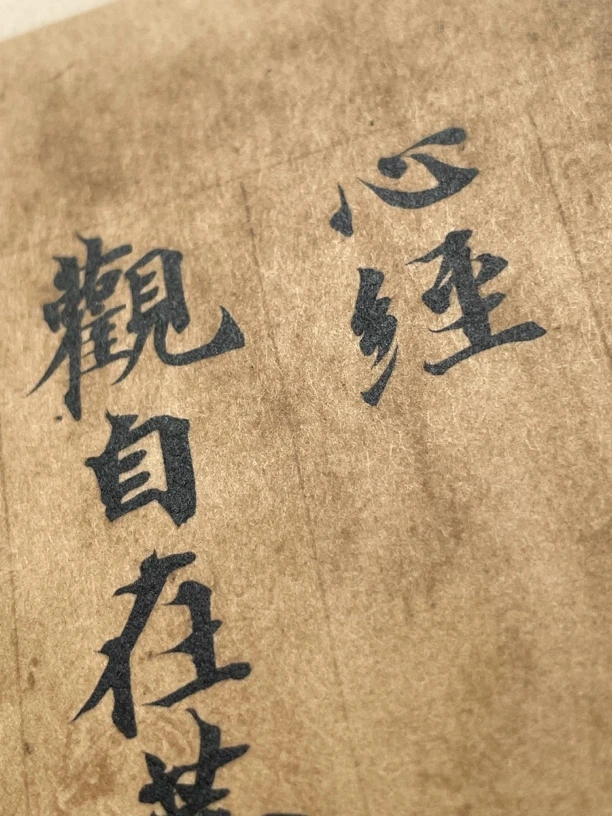 心經
觀自在菩